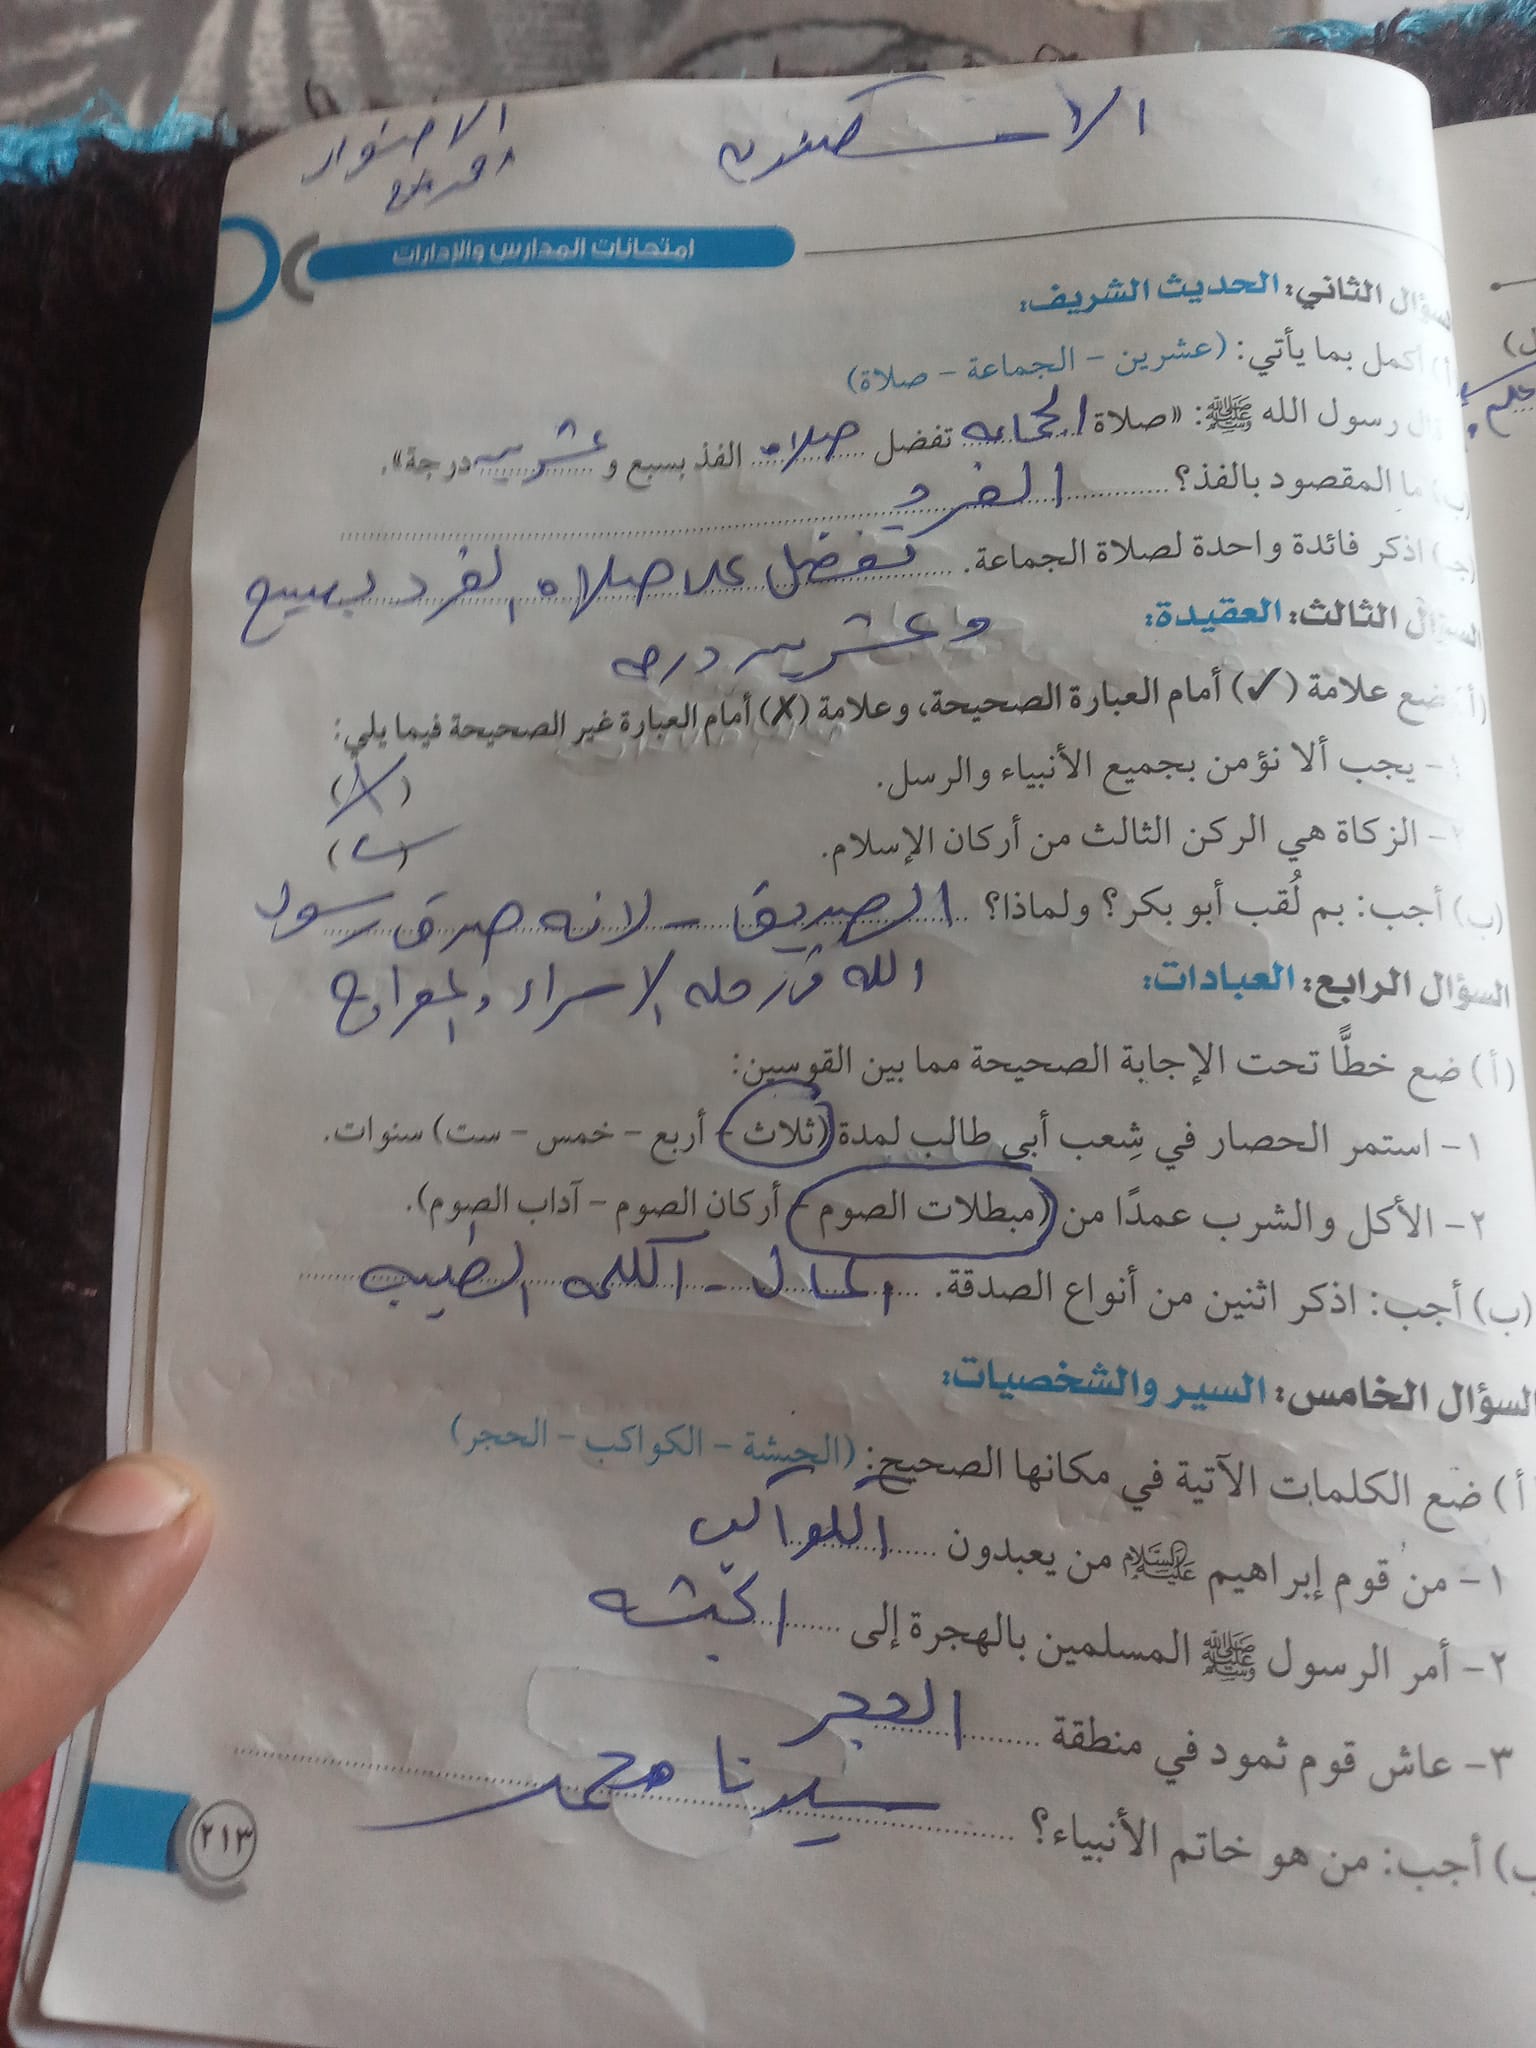 الاختبار
امتحانات المدارس والإدارات
سؤال الثاني: الحديث الشريف:
أكمل بما يأتي: (عشرين - الجماعة - صلاة)
قال رسول الله ﷺ: «صلاة الجماعه تفضل صلاه الفذ بسبع و عشرين درجة».
ب) ما المقصود بالفذ؟ الفرد
(جـ) اذكر فائدة واحدة لصلاة الجماعة. تفضل علا صلاه الفرد بسبع
السؤال الثالث: العقيدة:
وعشرين درجه
(أ) ضع علامة (✓) أمام العبارة الصحيحة، وعلامة (✗) أمام العبارة غير الصحيحة فيما يلي:
١- يجب ألا نؤمن بجميع الأنبياء والرسل. (✗)
٢- الزكاة هي الركن الثالث من أركان الإسلام. (✓)
(ب) أجب: بم لُقب أبو بكر؟ ولماذا؟ الصديق - لانه صدق رسول
الله في رحله الاسراء والمعراج
السؤال الرابع: العبادات:
(أ) ضع خطًّا تحت الإجابة الصحيحة مما بين القوسين:
١- استمر الحصار في شِعب أبي طالب لمدة (ثلاث - أربع - خمس - ست) سنوات.
٢- الأكل والشرب عمدًا من (مبطلات الصوم - أركان الصوم - آداب الصوم).
(ب) أجب: اذكر اثنين من أنواع الصدقة. المال - الكلمه الطيبه
السؤال الخامس: السير والشخصيات:
أ) ضع الكلمات الآتية في مكانها الصحيح: (الحبشة - الكواكب - الحجر)
١- من قوم إبراهيم عليه السلام من يعبدون الكواكب
٢- أمر الرسول ﷺ المسلمين بالهجرة إلى الحبشه
٣- عاش قوم ثمود في منطقة الحجر
ب) أجب: من هو خاتم الأنبياء؟ سيدنا محمد
٢١٣